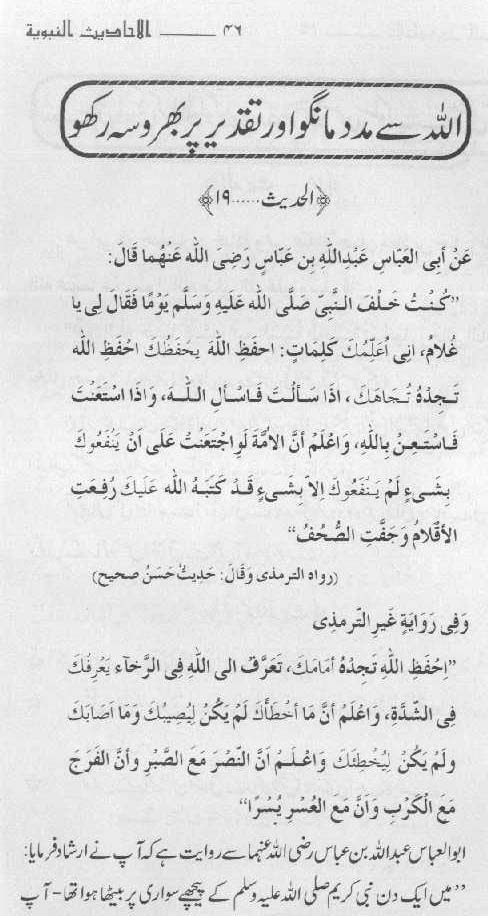 ۴۶ ــــــــ الاحادیث النبویة
اللہ سے مدد مانگو اور تقدیر پر بھروسہ رکھو
﴿الحدیث......۱۹﴾
عَنْ أبِی العَبّاسِ عَبْدِاللّٰهِ بِن عَبّاسٍ رَضِیَ اللّٰه عَنْهُما قَالَ:
”كُنْتُ خَلْفَ النَّبِیِّ صَلَّی اللّٰه عَلَیْهِ وَسَلَّم یَوْمًا فَقَال لِی یا
غُلامُ، اِنی اُعَلِّمُكَ كَلِمَاتٍ: احفَظِ اللّٰهَ یَحْفَظْكَ احْفَظِ اللّٰه
تَجِدْهُ تُجَاهَكَ، اذَا سَألْتَ فَاسْألِ اللّٰه، وَاذَا اسْتَعَنْتَ
فَاسْتَعِنْ بِاللّٰهِ، وَاعْلَم أنَّ الأمَّةَ لَوِاجْتَمَعَتْ عَلٰی اَنْ یَنْفَعُوكَ
بِشَیءٍ لَمْ یَنْفَعُوكَ اِلاّ بِشَیءٍ قَدْ كَتَبَهُ اللّٰه عَلَیكَ رُفِعَتِ
الأقْلَامُ وَجَفَّتِ الصُّحُفُ“
(رواه الترمذی وَقَالَ: حَدِیثٌ حَسَنٌ صحیح)
وَفِی رَوَایَةٍ غَیرِ التّرمذِی
”اِحْفَظِ اللّٰهَ تَجِدْهُ أمَامَكَ، تَعَرَّفْ الی اللّٰهِ فِی الرَّخآءِ یَعْرِفْكَ
فِی الشِّدَّةِ، وَاعْلَمْ أنَّ مَا أخْطَأكَ لَمْ یَكُنْ لِیُصِیبَكَ وَمَا أصَابَكَ
ولَمْ یَكُنْ لِیُخْطِئَكَ وَاعْلَمْ اَنَّ النّصْرَ مَعَ الصَّبْرِ وأنَّ الْفَرَجَ
مَعَ الْكَرْبِ وَاَنَّ مَعَ العُسْرِ یُسْرًا“
ابوالعباس عبداللہ بن عباس رضی اللہ عنہما سے روایت ہے کہ آپ نے ارشاد فرمایا:
”میں ایک دن نبی کریم صلی اللہ علیہ وسلم کے پیچھے سواری پر بیٹھا ہوا تھا- آپ